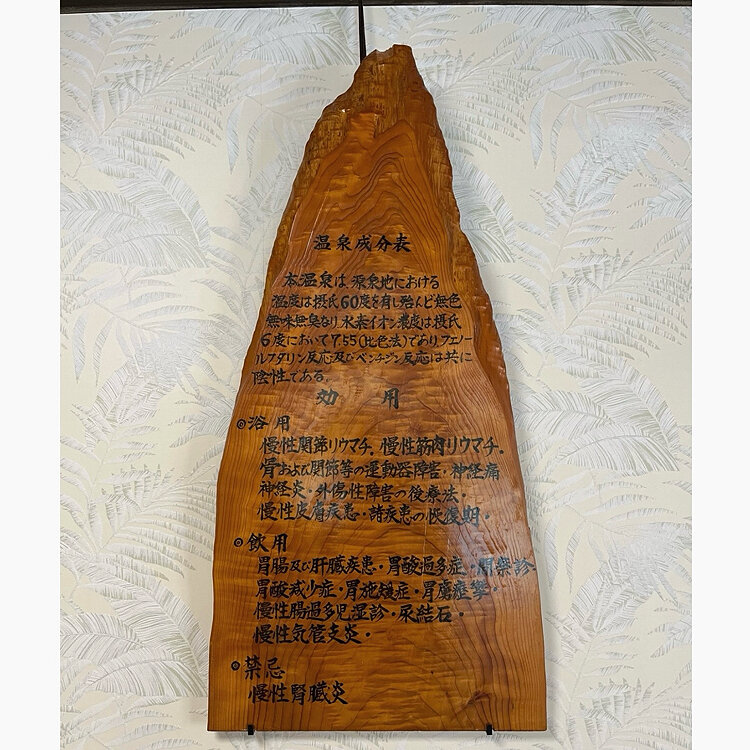 温泉成分表
本温泉は、源泉地における
温度は摂氏60度を有し殆んど無色
無味無臭なり、水素イオン濃度は摂氏
6度において7.55(比色法)でありフェノー
ルフタリン反応及びベンチジン反応は共に
陰性である。
効用
◎浴用
慢性関節リウマチ.慢性筋肉リウマチ.
骨および関節等の運動器障害・神経痛
神経炎・外傷性障害の後療法・
慢性皮膚疾患・諸疾患の恢復期・
◎飲用
胃腸及び肝臓疾患・胃酸過多症・
胃酸减少症・胃弛緩症・胃痙攣・
慢性腸過多児湿診・尿結石・
慢性気管支炎・
◎禁忌
慢性腎臓炎